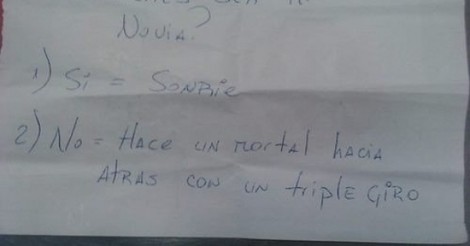 SER
Novia?
1) Si = SonRie
2) No = HAce UN moRtAl hAciA
AtRAS con un tRiple GiRO